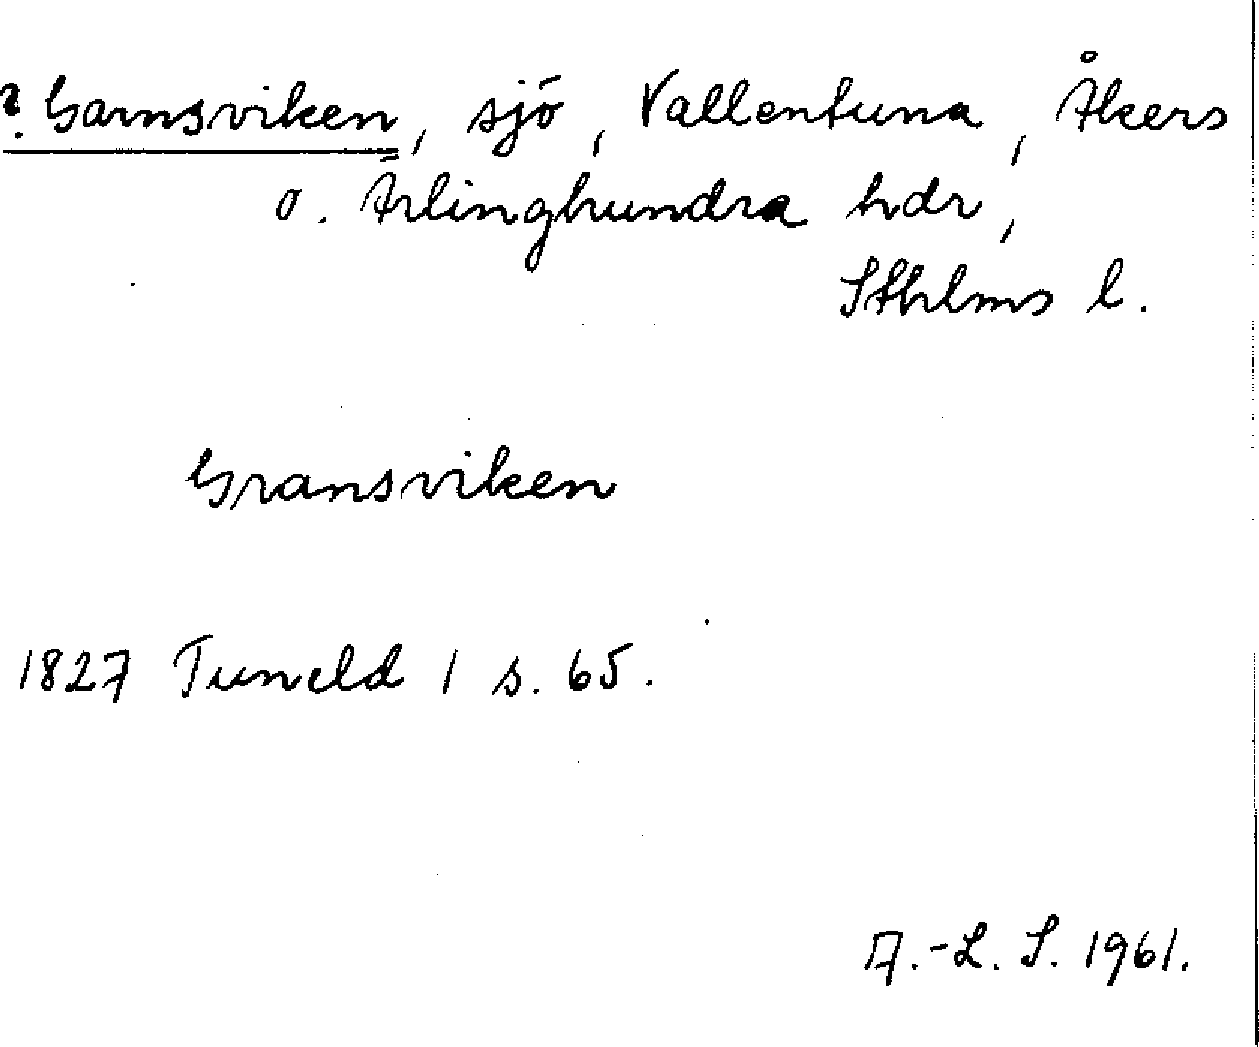 ? Garnsviken, sjö, Vallentuna, Åkers
o. Ärlinghundra hdr,
Sthlms l.
Gransviken
1827 Tuneld 1 s. 65.
A.-L. S. 1961.